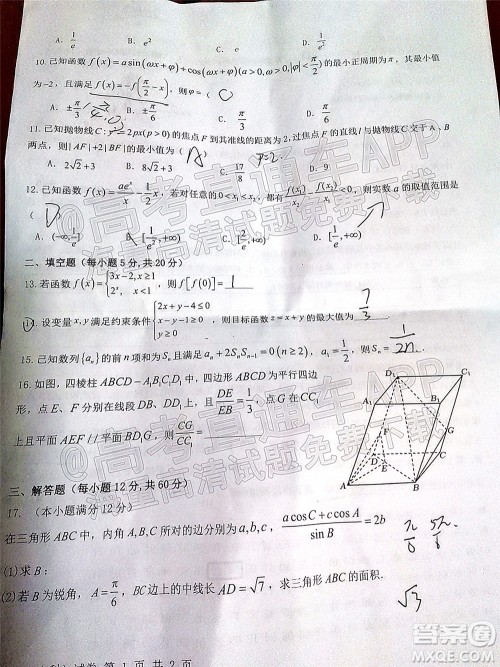 A. $\frac{1}{e}$ B. $e^2$ C. $e$ D. $\frac{1}{e}$
10. 已知函数 $f(x)=a\sin(\omega x+\varphi)+\cos(\omega x+\varphi)(a>0,\omega>0,|\varphi|<\frac{\pi}{2})$ 的最小正周期为 $\pi$，其最小值
为−2，且满足 $f(x)=-f(\frac{\pi}{2}-x)$，则 $\varphi=$（ C ）
A. $\pm\frac{\pi}{3}$ B. $\pm\frac{\pi}{6}$ C. $\frac{\pi}{3}$ D. $\frac{\pi}{6}$
11. 已知抛物线 $C: y^2=2px(p>0)$ 的焦点 F 到其准线的距离为 2,过焦点 F 的直线 l 与抛物线 C 交于 A、B
两点，则 $|AF|+2|BF|$ 的最小值为（ A ） p=2.
A. $2\sqrt{2}+3$ B. $8\sqrt{2}+3$ C. $\frac{17}{8}$ D. 9
12. 已知函数 $f(x)=\frac{ae^x}{x}-\frac{1}{2}x$，若对任意的 $0<x_1<x_2$，都有 $\frac{f(x_1)}{x_2}<\frac{f(x_2)}{x_1}$，则实数 a 的取值范围是
（ D ）
A. $(-\infty,\frac{1}{e}]$ B. $[\frac{1}{e^2},+\infty)$ C. $[\frac{1}{2e},+\infty)$ D. $[\frac{1}{e},+\infty)$
二、填空题（每小题 5 分,共 20 分）
13. 若函数 $f(x)=\begin{cases}3x-2,x\geq1\\2^x,x<1\end{cases}$，则 $f[f(0)]=$ 1
14. 设变量 x,y 满足约束条件 $\begin{cases}2x+y-4\leq0\\x-y-1\geq0\\y+1\geq0\end{cases}$，则目标函数 $z=x+y$ 的最大值为 $\frac{7}{3}$
15. 已知数列 $\{a_n\}$ 的前 n 项和为 $S_n$ 且满足 $a_n+2S_nS_{n-1}=0(n\geq2)$，$a_1=\frac{1}{2}$，则 $S_n=$ $\frac{1}{2n}$.
16. 如图，四棱柱 $ABCD-A_1B_1C_1D_1$ 中，四边形 ABCD 为平行四边
形，点 E、F 分别在线段 DB、DD₁ 上，且 $\frac{DE}{EB}=\frac{1}{2}$，点 G 在 CC₁
上且平面 AEF // 平面 BD₁G，则 $\frac{CG}{CC_1}=$
D₁ C₁
A₁ B₁
F G
D E C
A B
三、解答题（每小题 12 分,共 60 分）
17. （本小题满分 12 分）
在三角形 ABC 中，内角 A,B,C 所对的边分别为 a,b,c，$\frac{a\cos C+c\cos A}{\sin B}=2b$ $\frac{\pi}{6}$ $\frac{5\pi}{6}$.
(1)求 B；
(2)若 B 为锐角，$A=\frac{\pi}{6}$，BC 边上的中线长 $AD=\sqrt{7}$，求三角形 ABC 的面积.
$\sqrt{3}$
试卷 第 1 页 共 2 页
高考直通车APP
海量高清试题免费下载
高考直通车APP
海量高清试题免费下载
答案圈
MXQE.COM